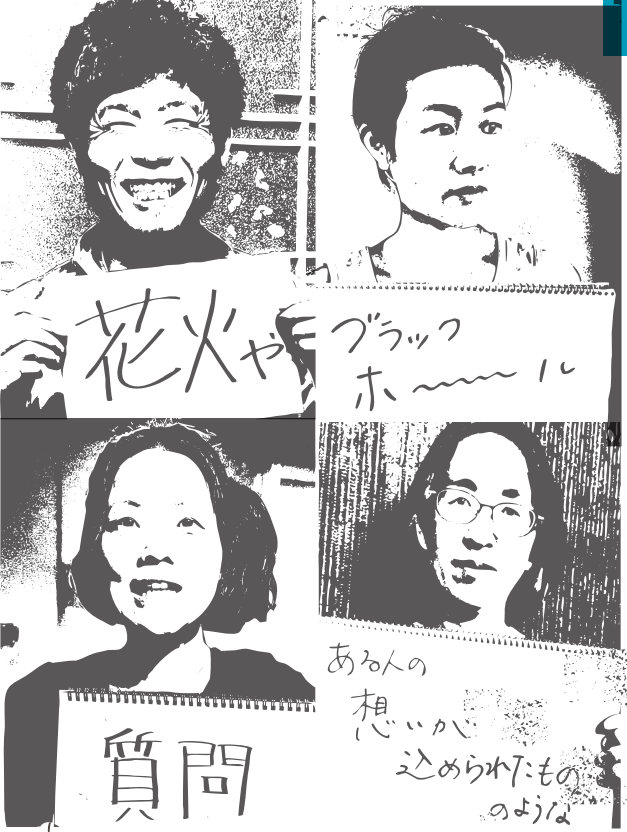 花火や
ブラック
ホ〜ル
質問
ある人の
想いが
込められたもの
のような